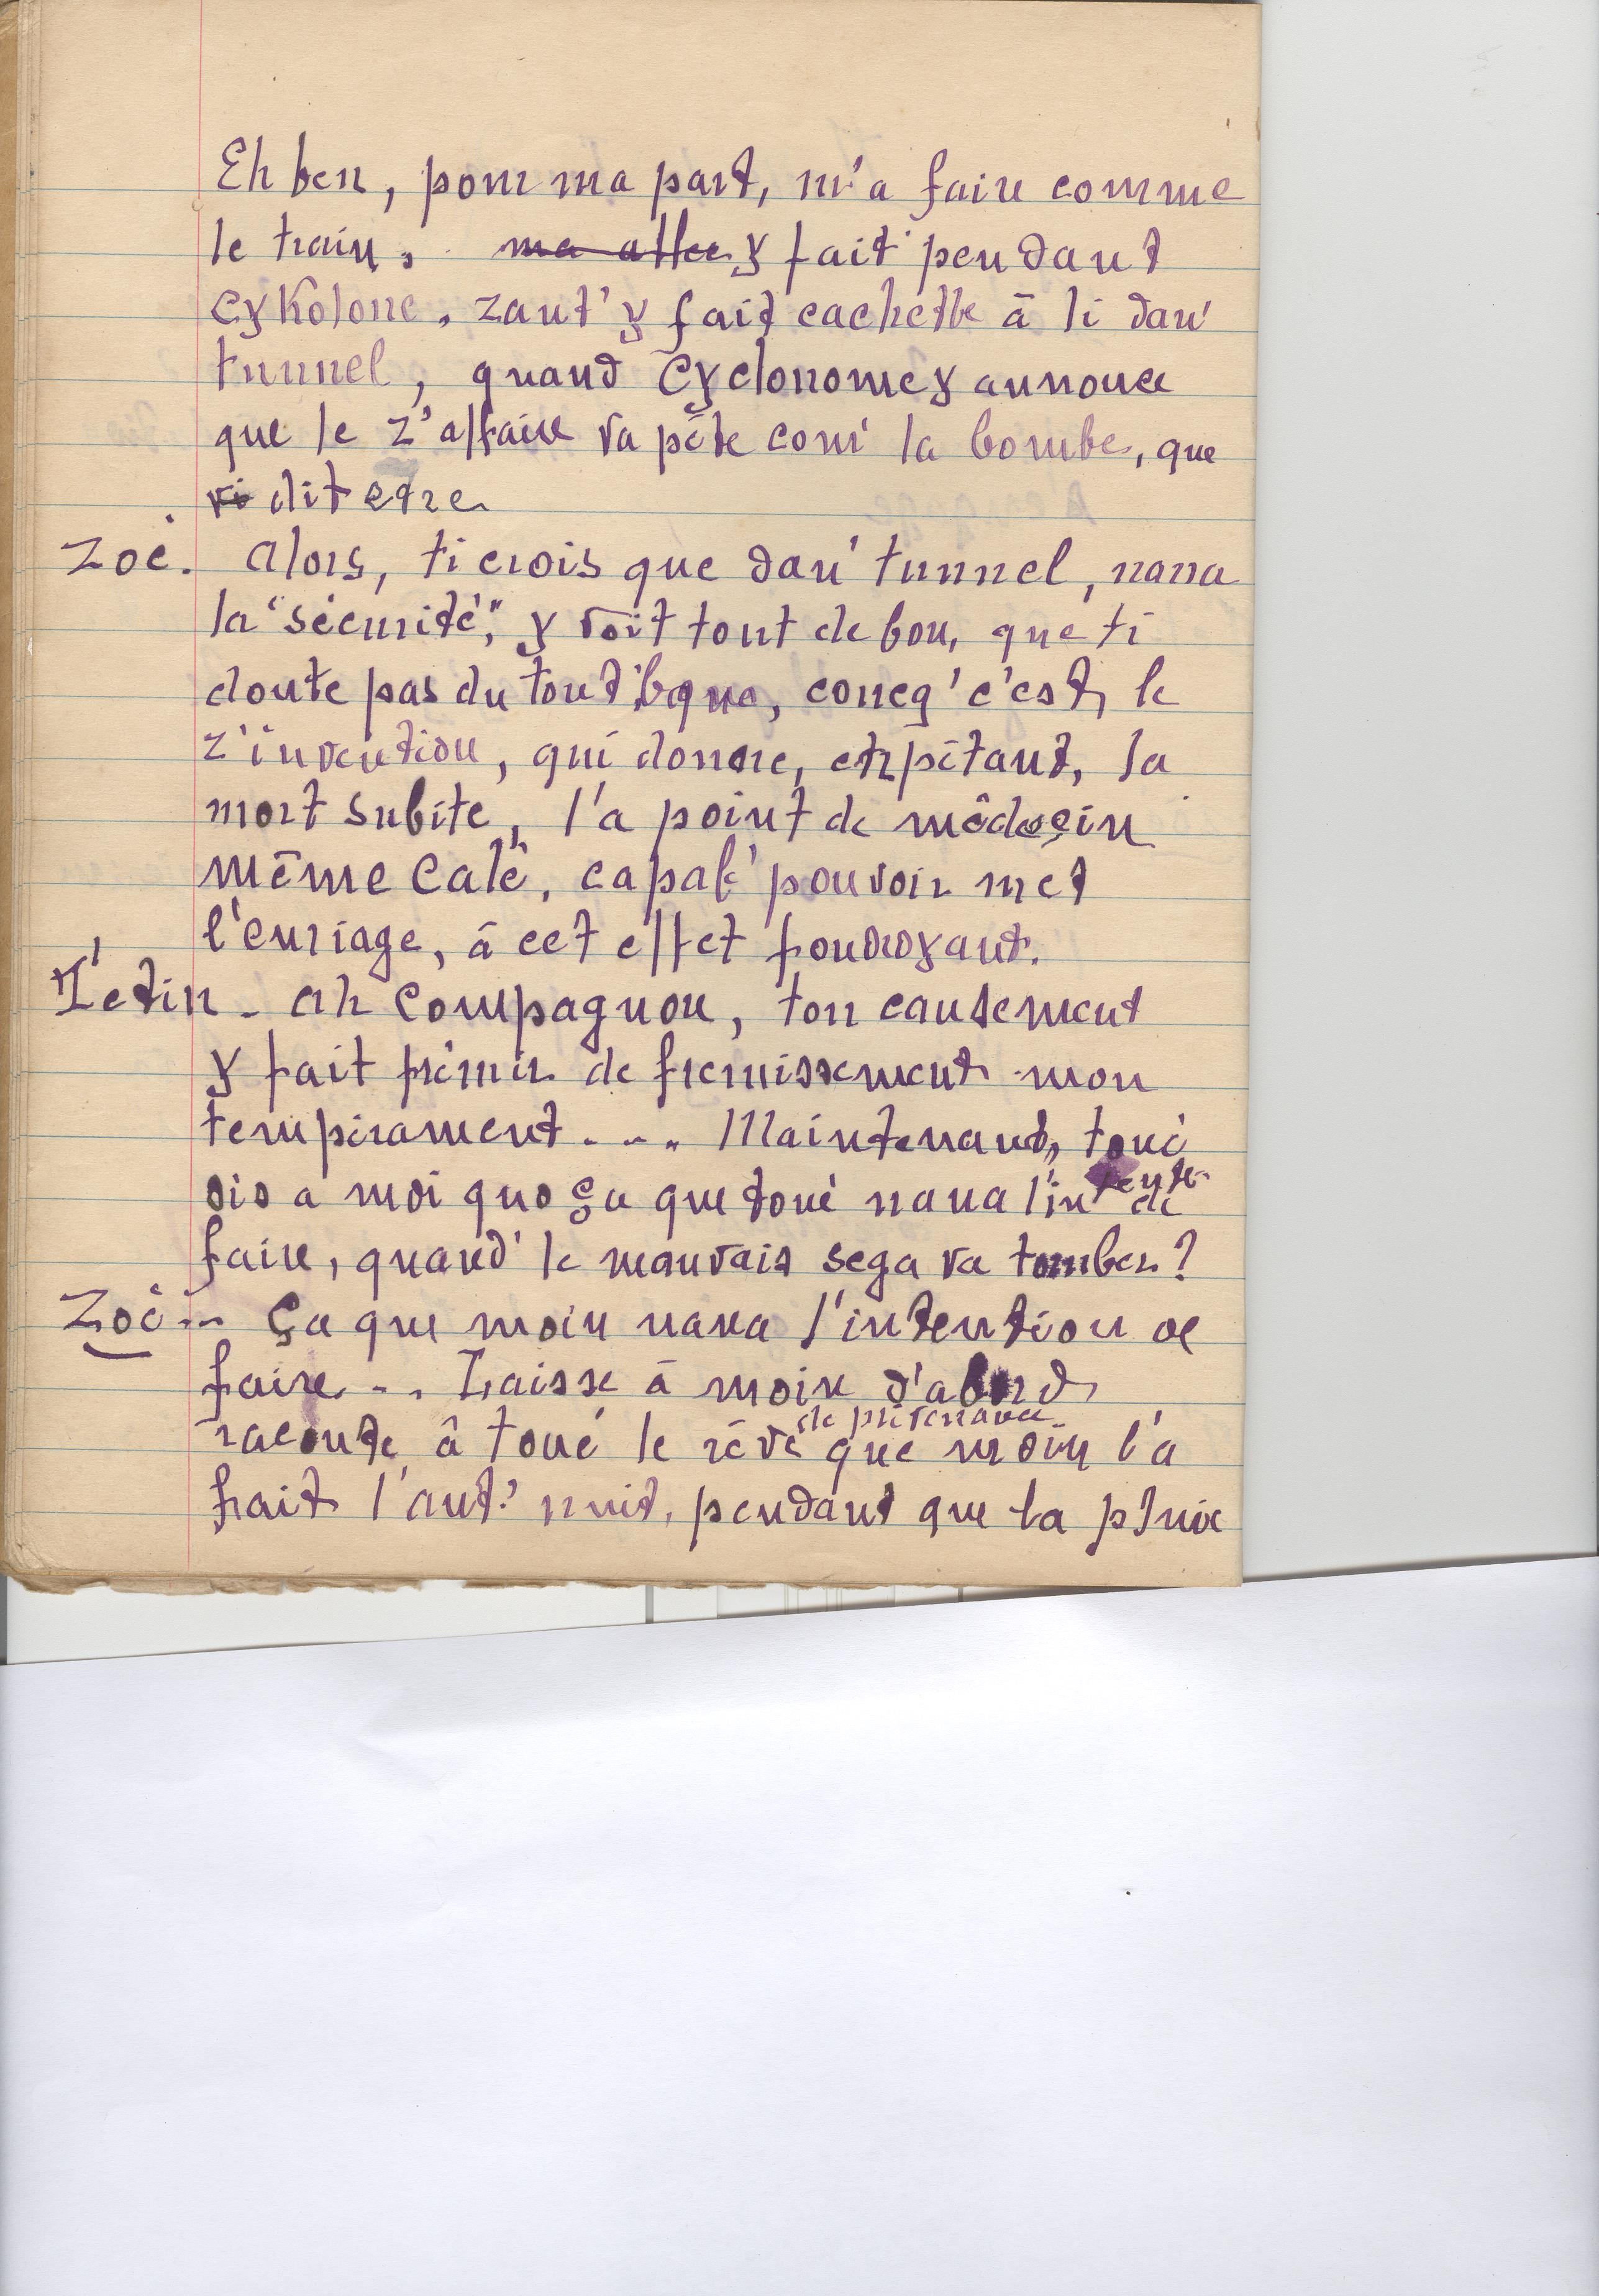 Eh ben, pour ma part, m'a faire comme
le train, ma allee y fait pendant
cykolone. Zaut' y fait cachette à li dan'
tunnel, quand Cyclonome y annonce
que le z'affaire va pète com' la bombe, que
vi dit
Zoé. Alors, ti crois que dan' tunnel, nana
la "sécurité", y voit tout de bon, que ti
doute pas du tout que, concq' c'est, le
z'invention, qui donne, en pétant, la
mort subite, l'a point de médecin
même calé, capab' pouvoir met
l'enriage, à cet effet foudroyant.
Tétin - Ah compagnon, ton causement
y fait frémir de fremissement mon
tempérament . . . . Maintenant, toué
dis a moi quo ça que toué nana l'intente de
faire, quand' le mauvais sega va tomber?
Zoé - Ça que moin nana l'intention de
faire . . . Laisse à moin d'abord
raconte à toué le rêve de prévenance que moin l'a
fait l'aut' nuit, pendant que la pluie